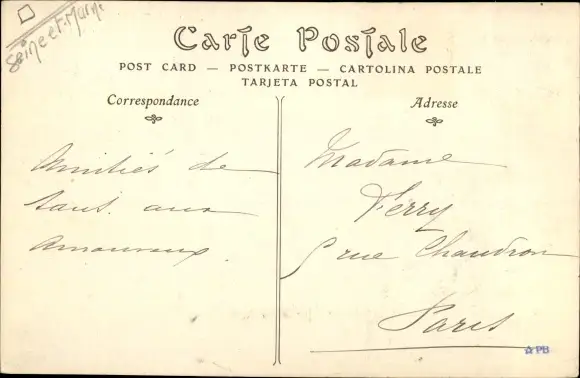 Seine et Marne
Carte Postale
POST CARD — POSTKARTE — CARTOLINA POSTALE
TARJETA POSTAL
Correspondance
Adresse
Amitiés de
tous. aux
amoureux.
Madame
Ferry
5 rue Chaudron
Paris
PB